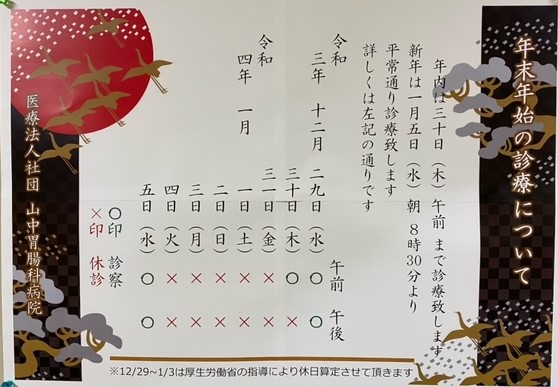 年末年始の診療について
年内は三十日(木)午前 まで診療致します
新年は一月五日(水)朝 8時30分より
平常通り診療致します
詳しくは左記の通りです
令和 午前 午後
三年 十二月 二九日(水) ○ ○
三十日(木) ○ ×
令和 三一日(金) × ×
四年 一月 一日(土) × ×
二日(日) × ×
三日(月) × ×
四日(火) × ×
五日(水) ○ ○
○印 診察
×印 休診
医療法人社団 山中胃腸科病院
※12/29~1/3は厚生労働省の指導により休日算定させて頂きます